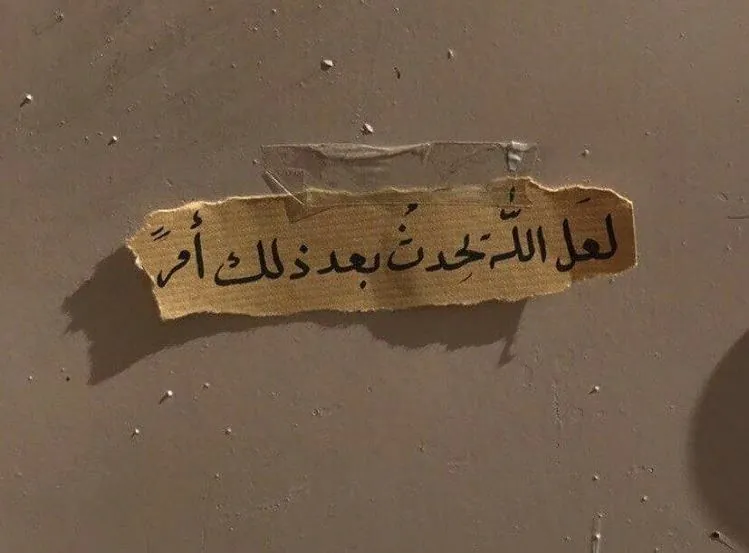 لعَل اللّه يحدثُ بعد ذلك أمرً